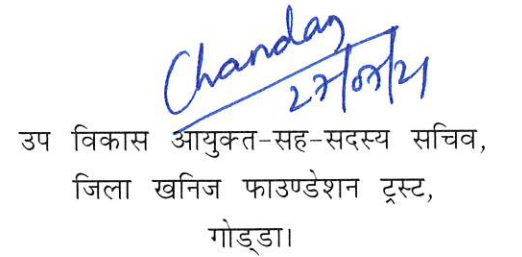 Chandan
27/07/21
उप विकास आयुक्त-सह-सदस्य सचिव,
जिला खनिज फाउण्डेशन ट्रस्ट,
गोड्डा।